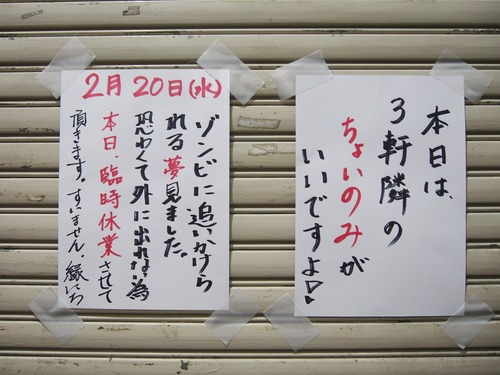 2月20日(水)
ゾンビに追いかけら
れる夢見ました。
恐わくて外に出れない為
本日、臨時休業させて
頂きます。すいません。縁にち
本日は、
3軒隣の
ちょいのみが
いいですよ!!